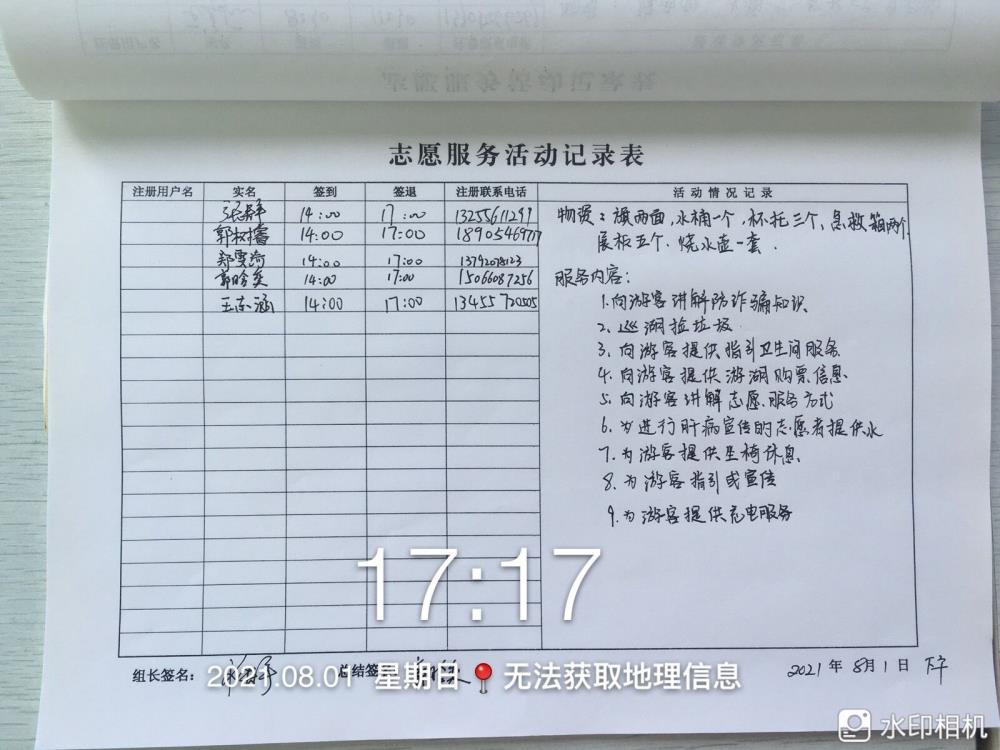 志愿服务活动记录表
注册用户名 实名 签到 签退 注册联系电话 活动情况记录
张群 14:00 17:00 13255611291
郭权 14:00 17:00 18905469717
郑雯 14:00 17:00 13792078123
郭晗奕 14:00 17:00 15066087256
王东涵 14:00 17:00 13455720505
物资：旗两面,水桶一个,杯托三个、急救箱两个
展板五个、烧水壶一套.
服务内容：
1.向游客讲解防诈骗知识
2、巡湖捡垃圾
3、向游客提供指引卫生间服务
4、向游客提供游湖购票信息
5、向游客讲解志愿服务方式
6、为进行肝病宣传的志愿者提供水
7、为游客提供坐椅休息
8、为游客指引或宣传
9、为游客提供充电服务
17:17
组长签名： 总结签
2021年8月1日 下午
2021.08.01 星期日 无法获取地理信息
水印相机